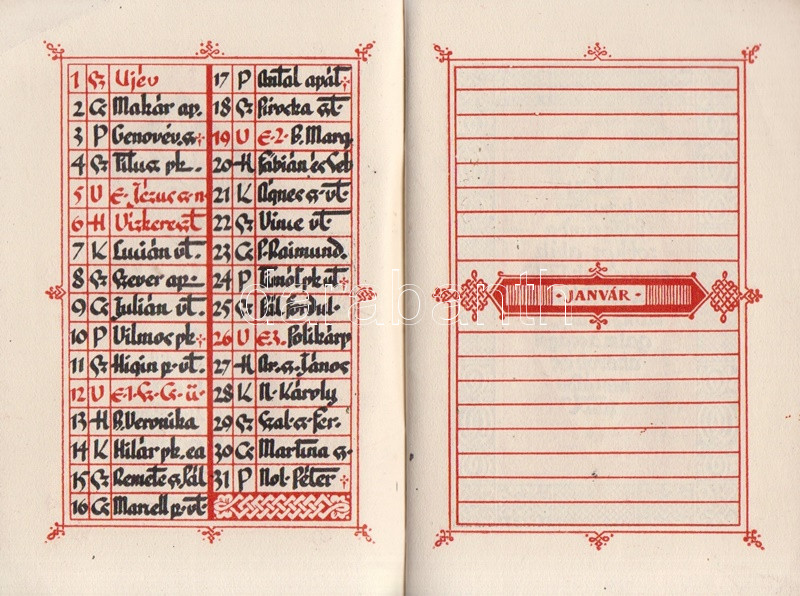 1 Sz Ujév
2 Cs Makár ap.
3 P Genovév. sz
4 Sz Titusz pk.
5 U E. Jézus sz. n
6 H Vízkereszt
7 K Lucián vt.
8 Sz Szever ap.
9 Cs Julián vt.
10 P Vilmos pk
11 Sz Higin p. vt.
12 U E. 1. Sz. Cs. ü.
13 H B. Veronika
14 K Hilár pk. ea
15 Sz Remete sz Pál
16 Cs Marcell p. vt
17 P Antal apát
18 Sz Piroska szt.
19 U E. 2. B. Marg.
20 H Fábián és Seb
21 K Ágnes sz. vt.
22 Sz Vince vt.
23 Cs P. Raimund.
24 P Timót pk vt
25 Sz Pál fordul.
26 U E. 3. Polikárp
27 H Ar. sz. János
28 K N. Károly
29 Sz Szal. sz. Fer.
30 Cs Martina sz.
31 P Nol. Péter
- JANVÁR -
darabanth